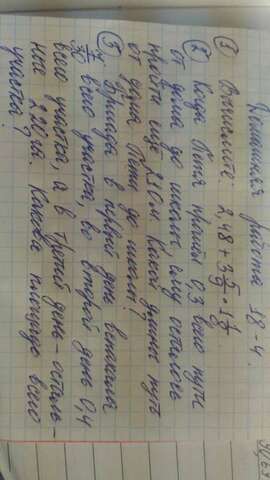 Домашняя работа 18-4.
① Вычислите: 2,48 + 3 5/7 · 1 1/6
② Когда Петя прошёл 0,3 всего пути
от дома до школы, ему осталось
пройти ещё 210м. Какой длины путь
от дома Пети до школы?
③ Бригада в первый день вспахала
7/30 всего участка, во второй день 0,4
всего участка, а в третий день – осталь-
ные 220га. Какова площадь всего
участка?